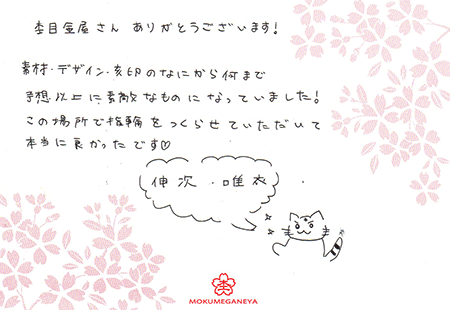 杢目金屋さん ありがとうございます!
素材・デザイン・刻印のなにから何まで
予想以上に素敵なものになっていました!
この場所で指輪をつくらせていただいて
本当に良かったです♡
伸次・唯衣
MOKUMEGANEYA